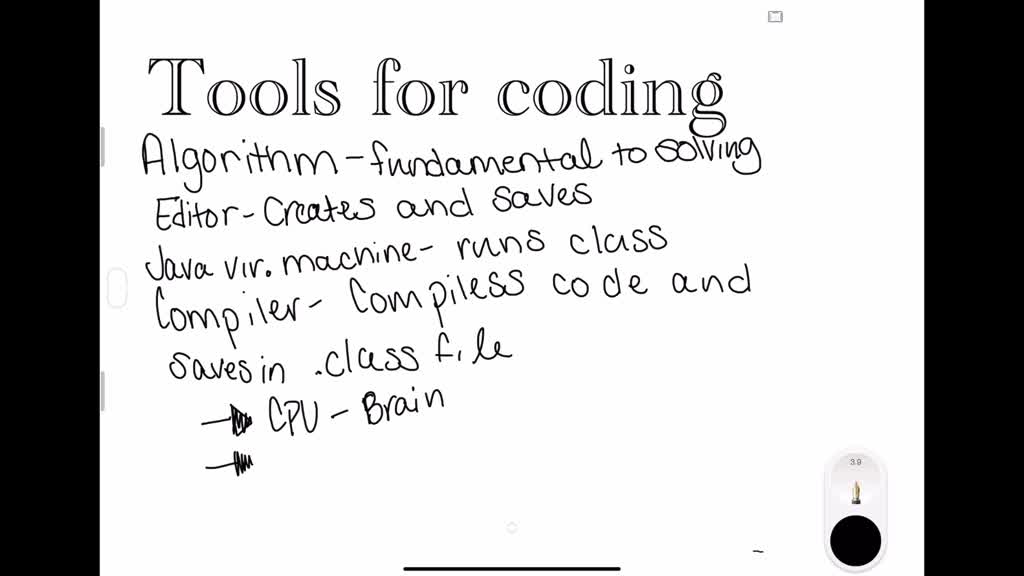 Tools for coding
Algorithm - fundamental to solving
Editor - Creates and saves
Java vir. machine - runs class
Compiler - Compiless code and
saves in .class file
CPU - Brain
3.9